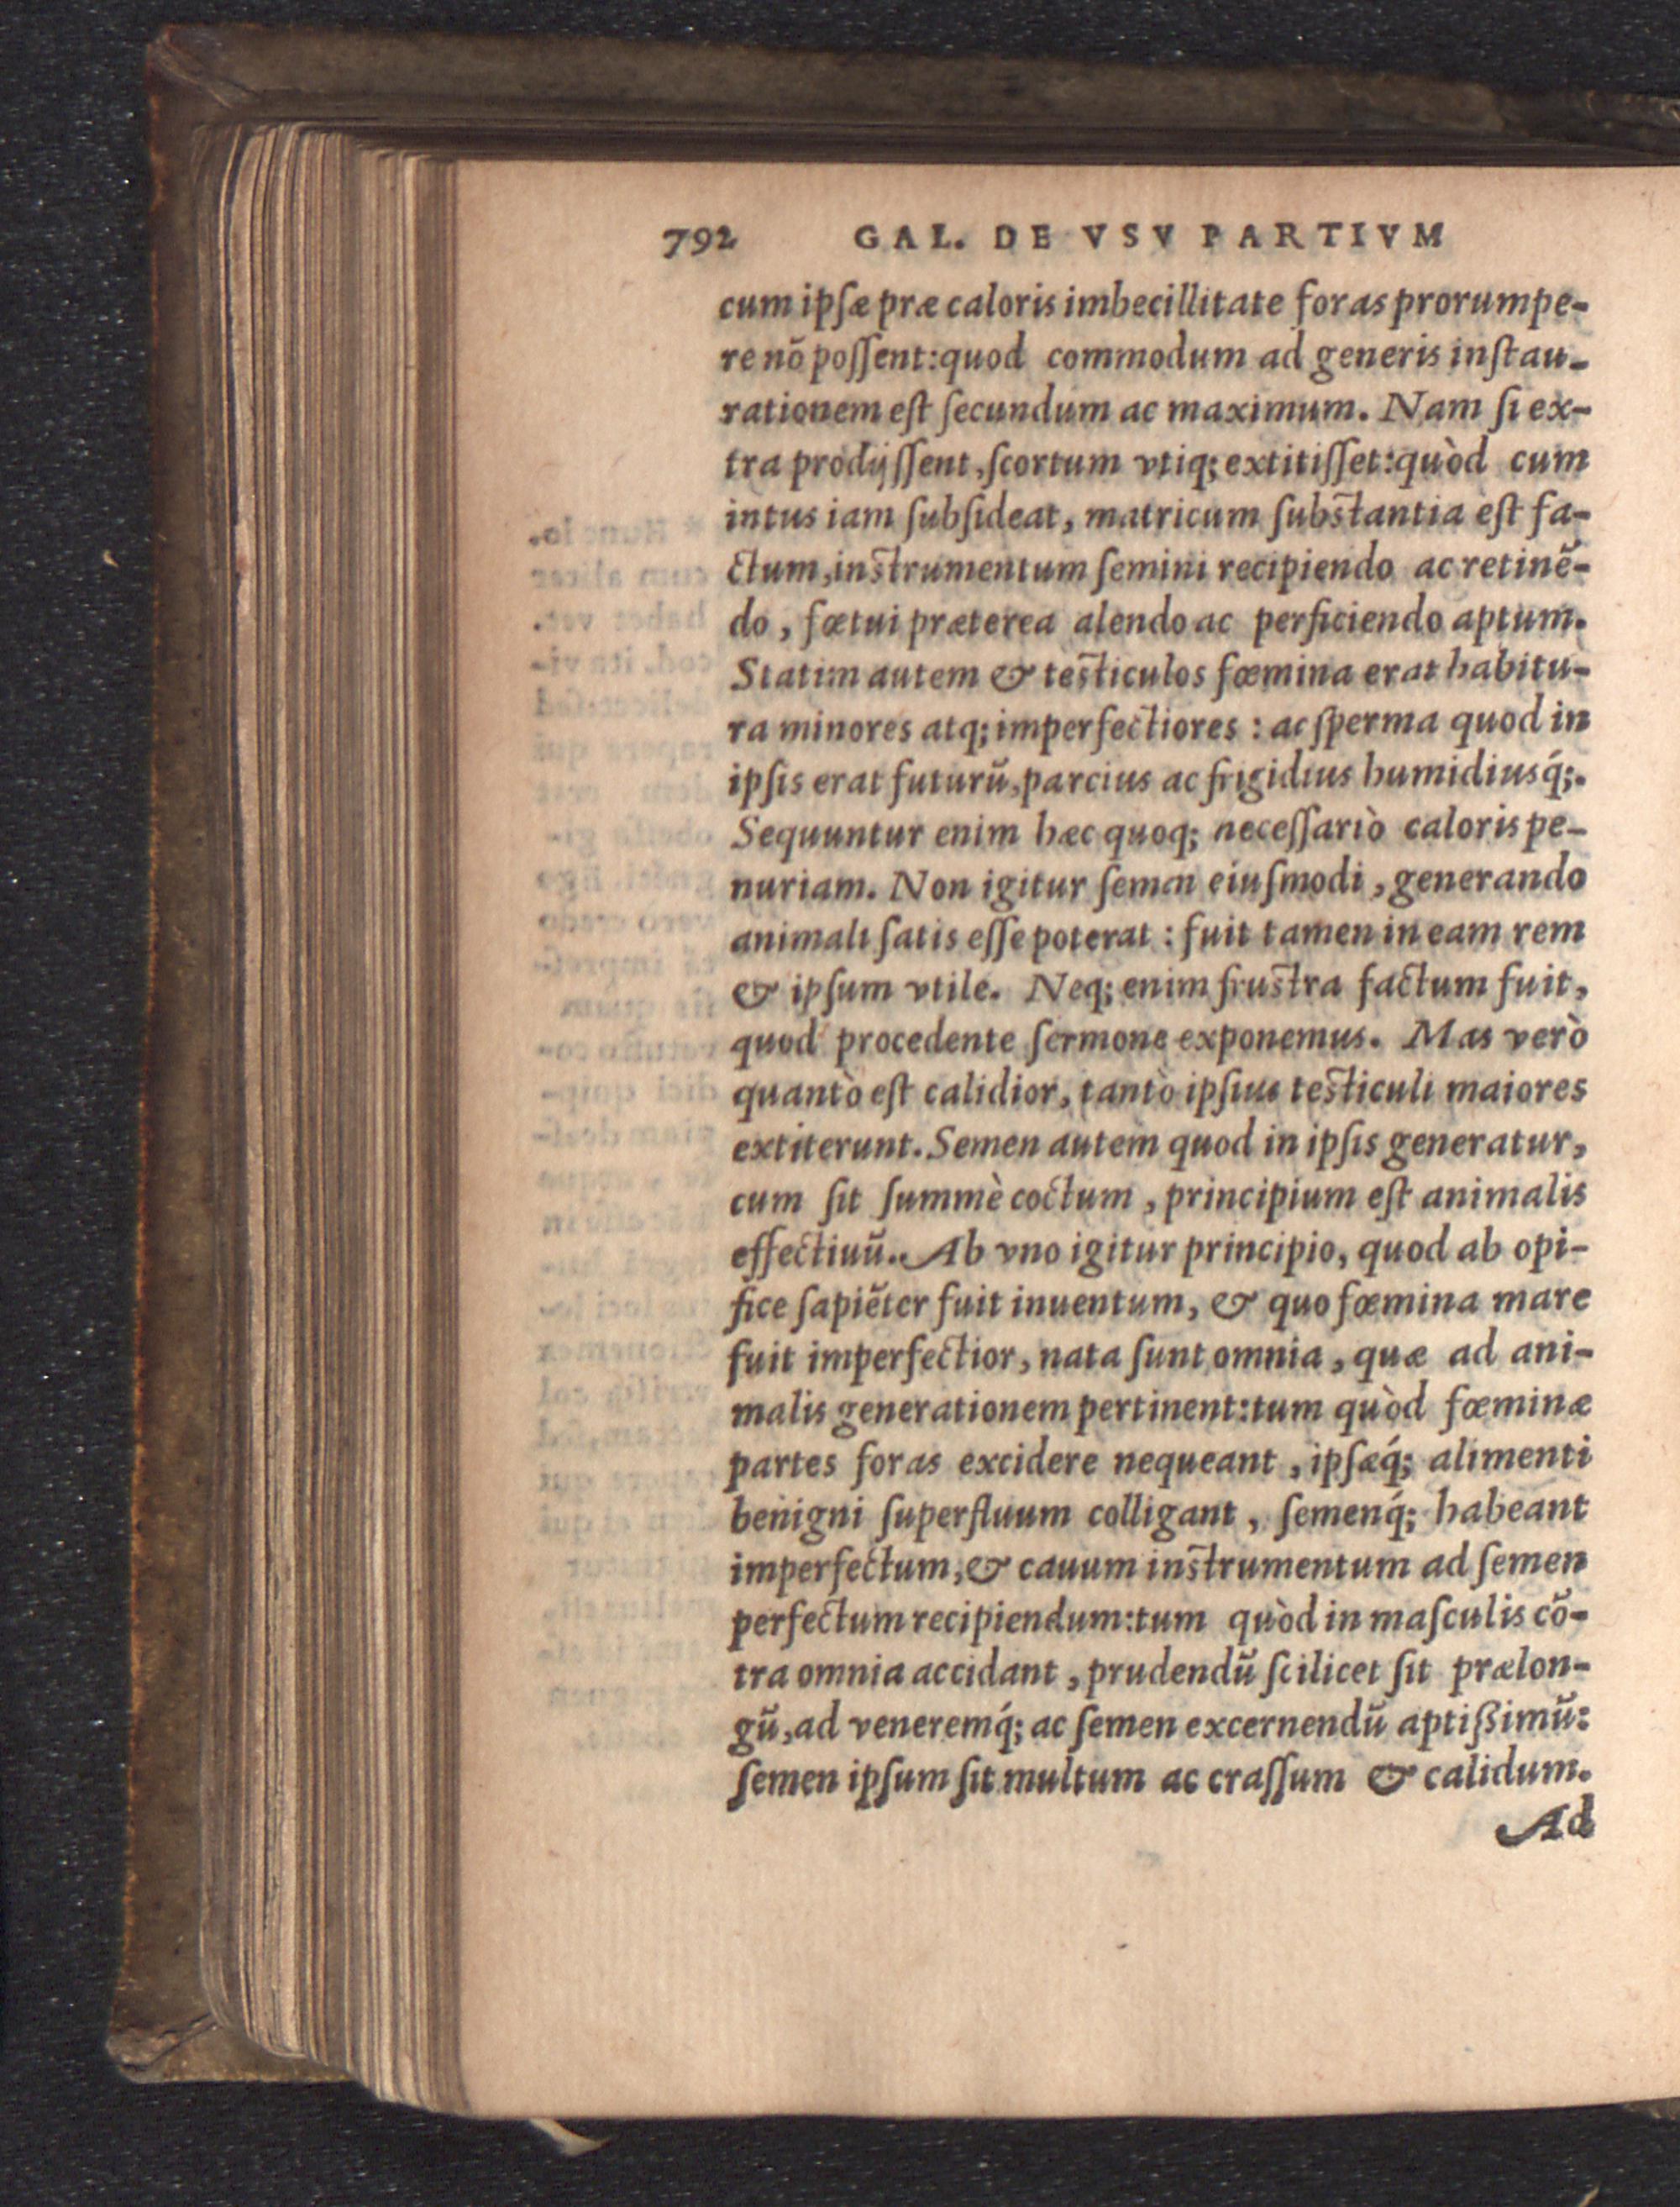 792 GAL. DE VSV PARTIVM
cum ipſæ præ caloris imbecillitate foras prorumpe-
re nõ poſſent: quod commodum ad generis inſtau-
rationem eſt ſecundum ac maximum. Nam ſi ex-
tra prodijſſent, ſcortum vtiq; extitiſſet: quòd cum
intus iam ſubſideat, matricum ſubſtantia eſt fa-
ctum, inſtrumentum ſemini recipiendo ac retinẽ-
do, fœtui præterea alendo ac perficiendo aptum.
Statim autem & teſticulos fœmina erat habitu-
ra minores atq; imperfectiores: ac ſperma quod in
ipſis erat futurũ, parcius ac frigidius humidiusq́;.
Sequuntur enim hæc quoq; neceſſariò caloris pe-
nuriam. Non igitur ſemen eiuſmodi, generando
animali ſatis eſſe poterat: fuit tamen in eam rem
& ipſum vtile. Neq; enim fruſtra factum fuit,
quod procedente ſermone exponemus. Mas verò
quantò eſt calidior, tantò ipſius teſticuli maiores
extiterunt. Semen autem quod in ipſis generatur,
cum ſit ſummè coctum, principium eſt animalis
effectiuũ. Ab vno igitur principio, quod ab opi-
fice ſapiẽter fuit inuentum, & quo fœmina mare
fuit imperfectior, nata ſunt omnia, quæ ad ani-
malis generationem pertinent: tum quòd fœminæ
partes foras excidere nequeant, ipſæq́; alimenti
benigni ſuperfluum colligant, ſemenq́; habeant
imperfectum, & cauum inſtrumentum ad ſemen
perfectum recipiendum: tum quòd in maſculis cõ-
tra omnia accidant, prudendũ ſcilicet ſit prælon-
gũ, ad veneremq́; ac ſemen excernendũ aptißimũ:
ſemen ipſum ſit multum ac craſſum & calidum.
Ad